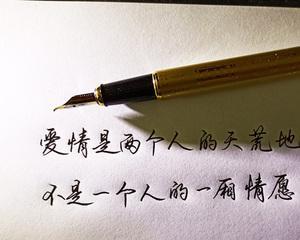 爱情是两个人的天荒地
不是一个人的一厢情愿